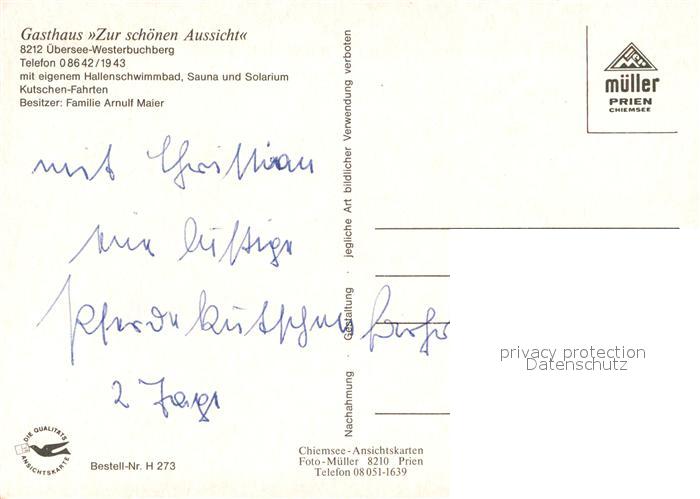 Gasthaus »Zur schönen Aussicht«
8212 Übersee-Westerbuchberg
Telefon 0 86 42 / 19 43
mit eigenem Hallenschwimmbad, Sauna und Solarium
Kutschen-Fahrten
Besitzer: Familie Arnulf Maier
mit Christian
eine lustige
Pferdekutschen
2 Tage
DIE QUALITÄTS
ANSICHTSKARTE
Bestell-Nr. H 273
Nachahmung · Gestaltung · jegliche Art bildlicher Verwendung verboten
müller
PRIEN
CHIEMSEE
privacy protection
Datenschutz
Chiemsee-Ansichtskarten
Foto-Müller 8210 Prien
Telefon 08 051-1639